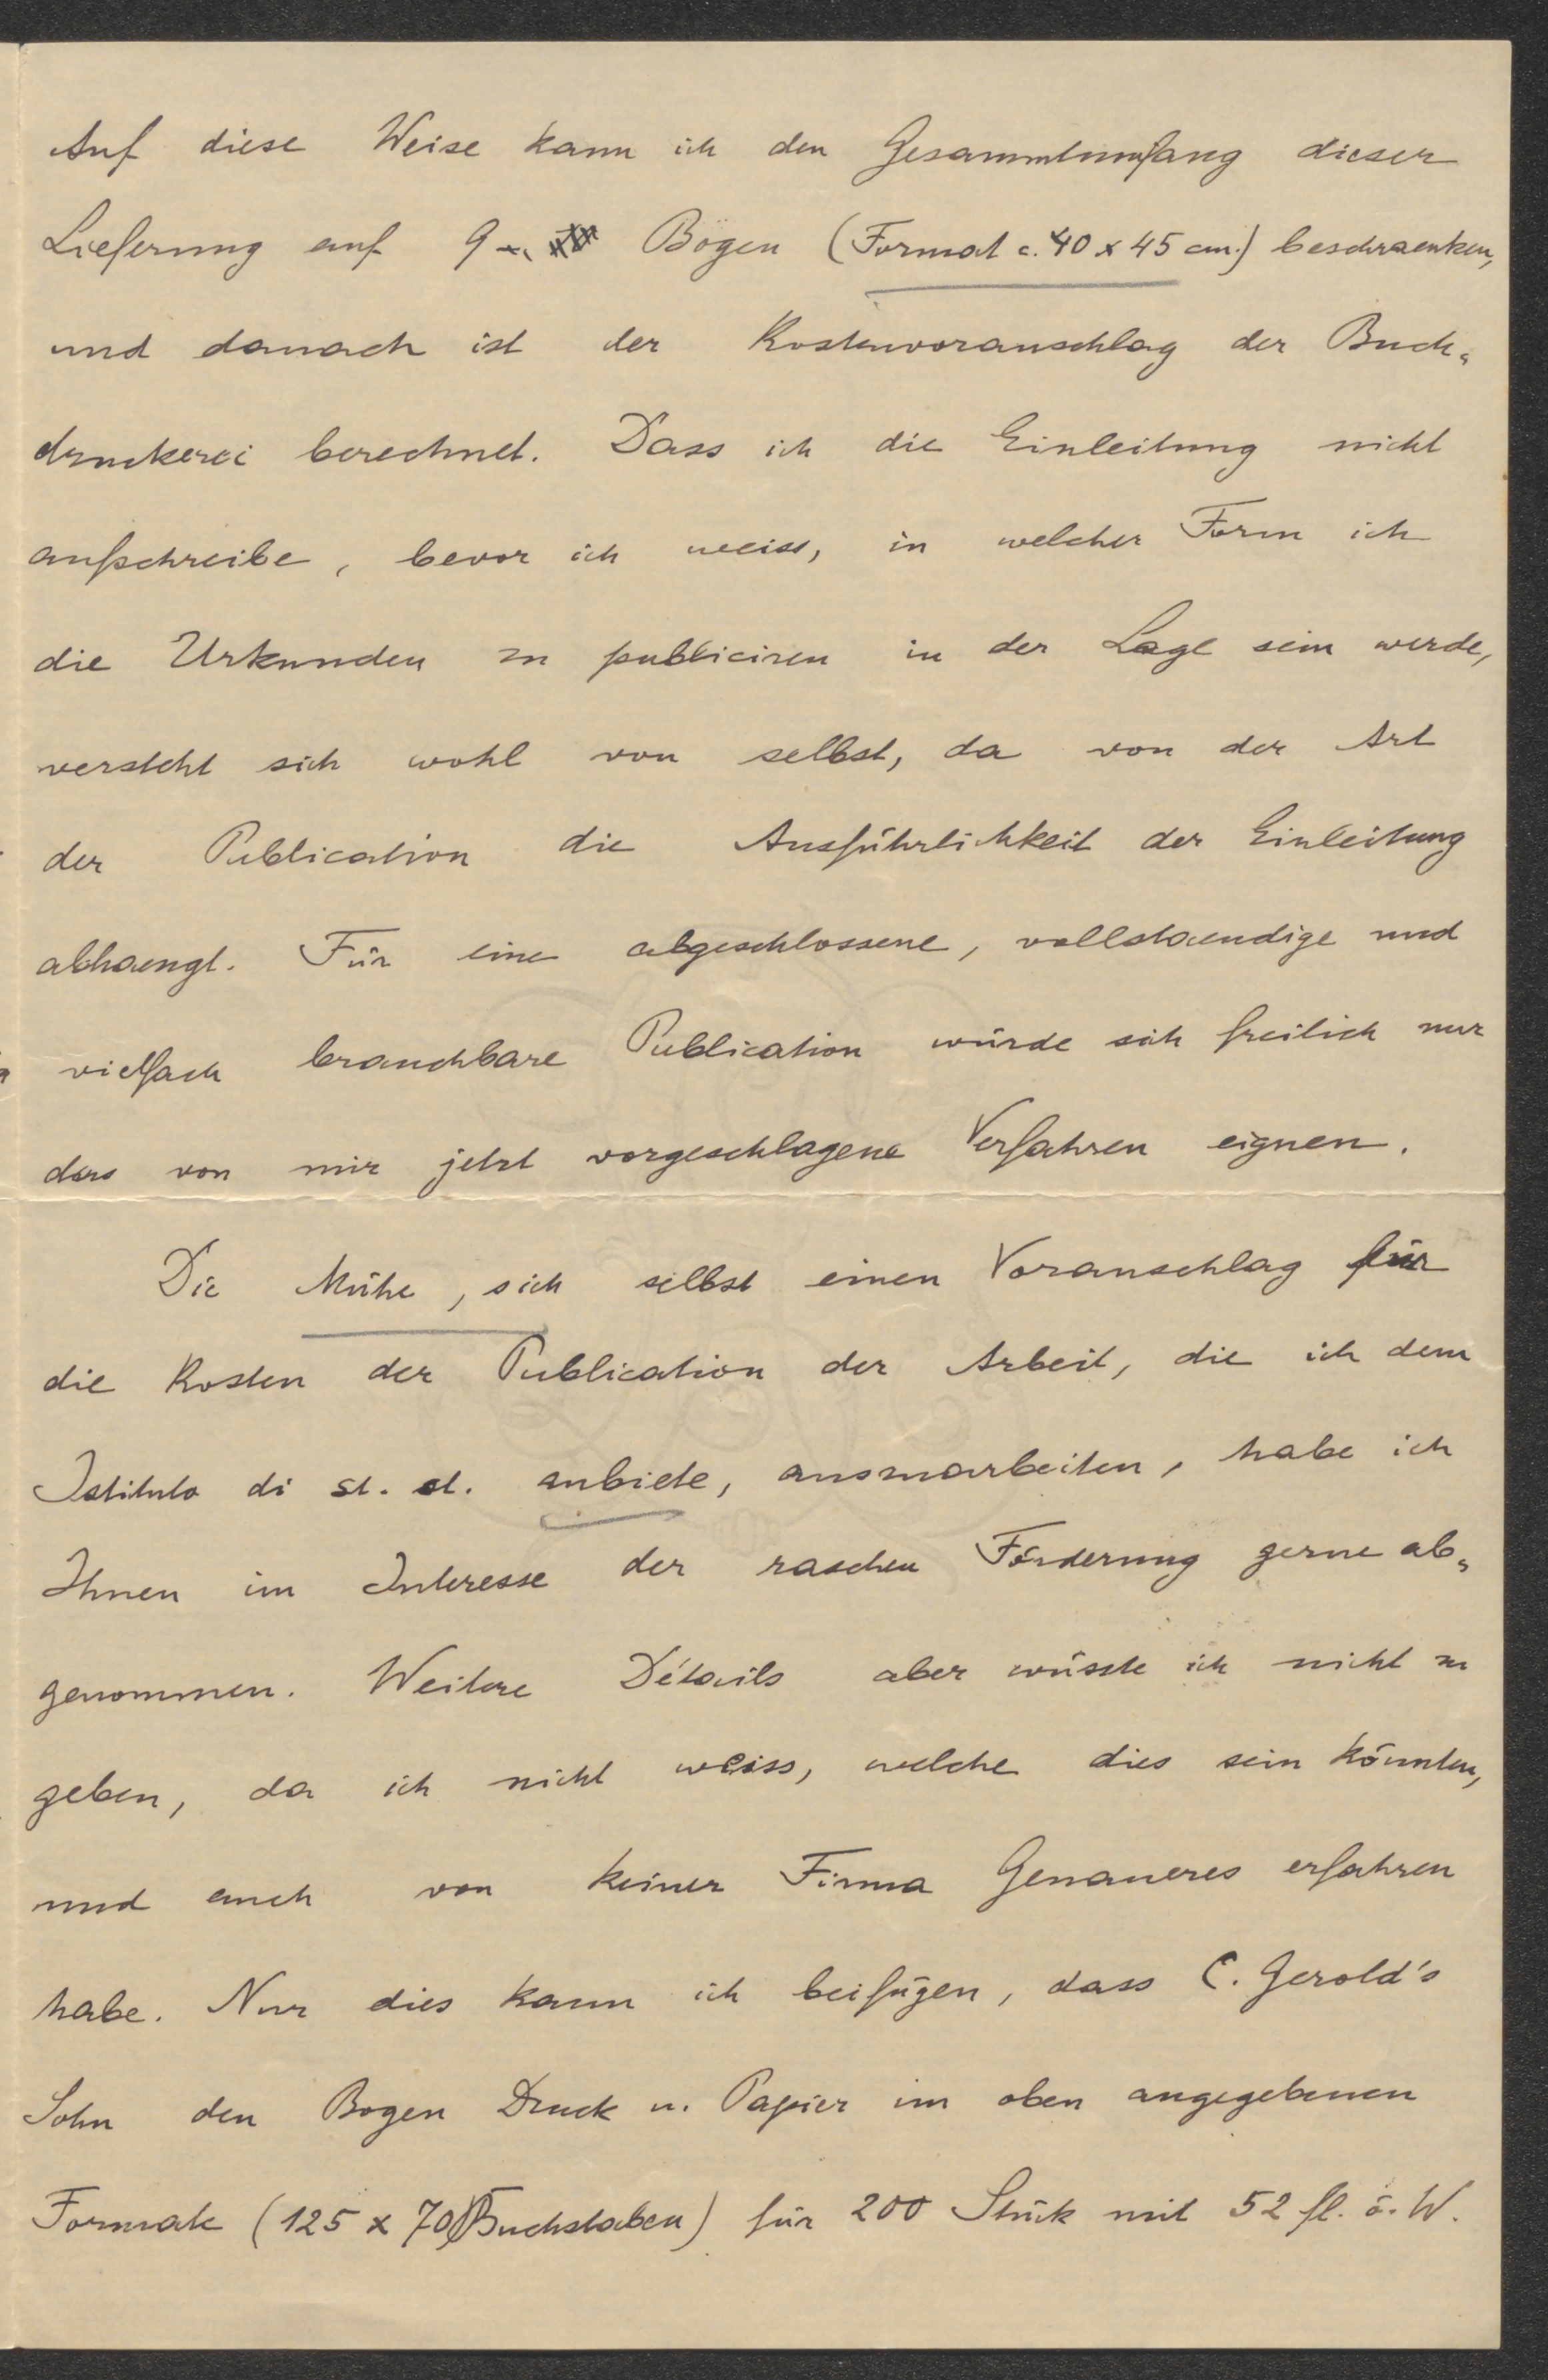 Auf diese Weise kann ich den Gesammtumfang dieser
Lieferung auf 9 Bögen (Format c. 40 x 45 cm.) beschraenken,
und danach ist der Kostenvoranschlag der Buch-
druckerei berechnet. Dass ich die Einleitung nicht
aufschreibe, bevor ich weiss, in welcher Form ich
die Urkunden zu publiciren in der Lage sein werde,
versteht sich wohl von selbst, da von der Art
der Publication die Ausführlichkeit der Einleitung
abhaengt. Für eine abgeschlossene, vollstaendige und
vielfach brauchbare Publication würde sich freilich nur
das von mir jetzt vorgeschlagene Verfahren eignen.
Die Mühe, sich selbst einen Voranschlag für
die Kosten der Publication der Arbeit, die ich dem
Istituto di st. st. anbiete, auszuarbeiten, habe ich
Ihnen im Interesse der raschen Förderung gerne ab-
genommen. Weitere Détails aber wüsste ich nicht zu
geben, da ich nicht weiss, welche dies sein könnten,
und auch von keiner Firma Genaueres erfahren
habe. Nur dies kann ich beifügen, dass C. Gerold's
Sohn den Bogen Druck u. Papier im oben angegebenen
Formate (125 x 70 Buchstaben) für 200 Stück mit 52 fl. ö. W.